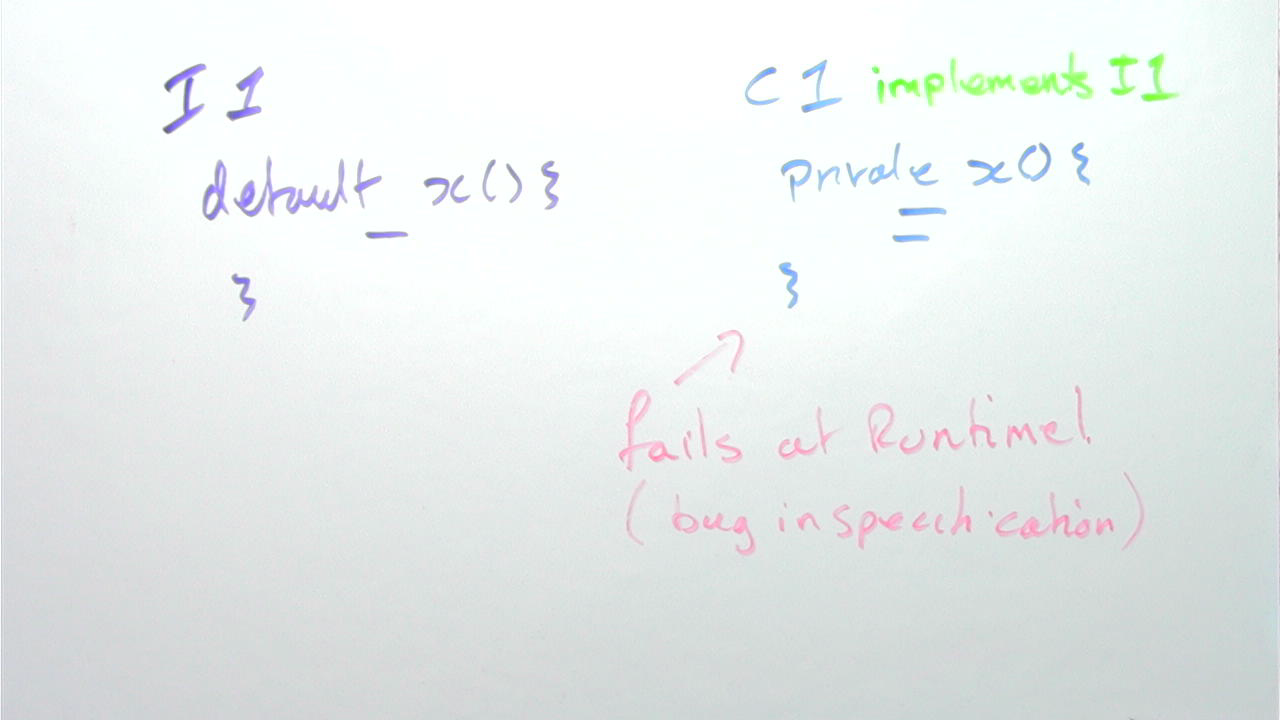 I1
default x(){
}
C1 implements I1
private x(){
}
fails at Runtime!
(bug in specification)